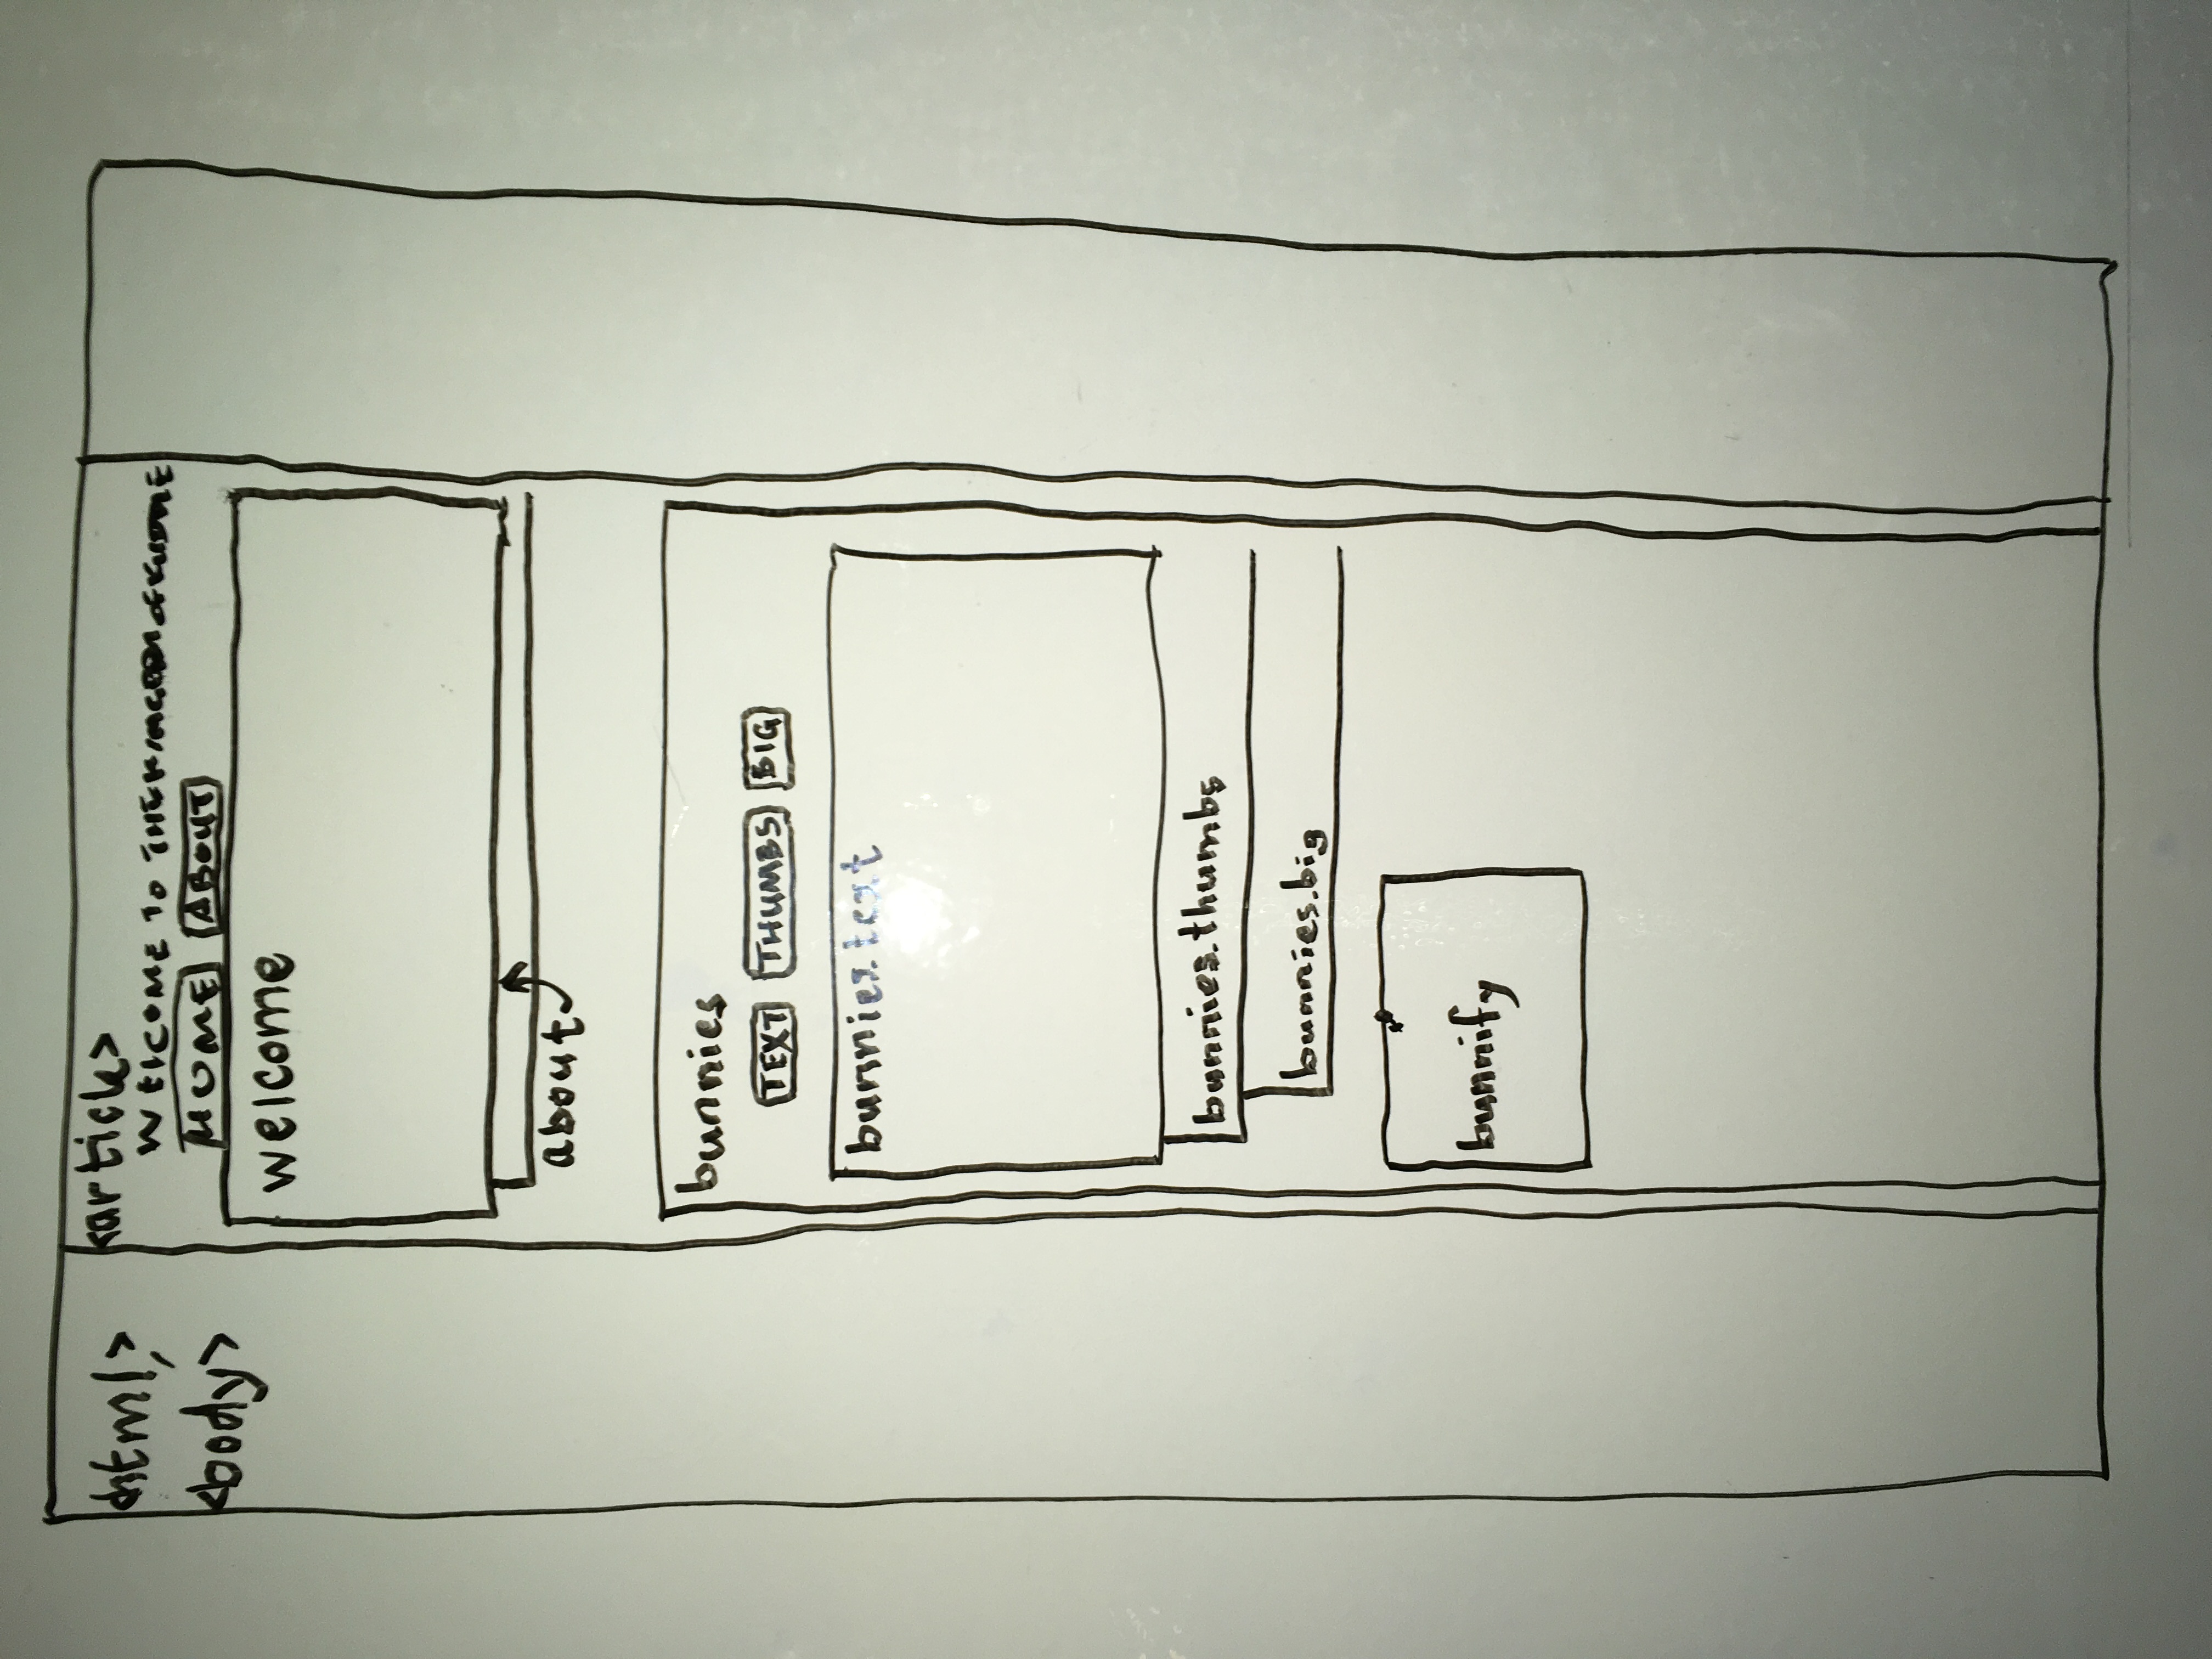 <html>,
<body>
<article>
WELCOME TO THE KINGDOM OF
HOME ABOUT
welcome
about
bunnies
TEXT THUMBS BIG
bunnies.text
bunnies.thumbs
bunnies.big
bunnify